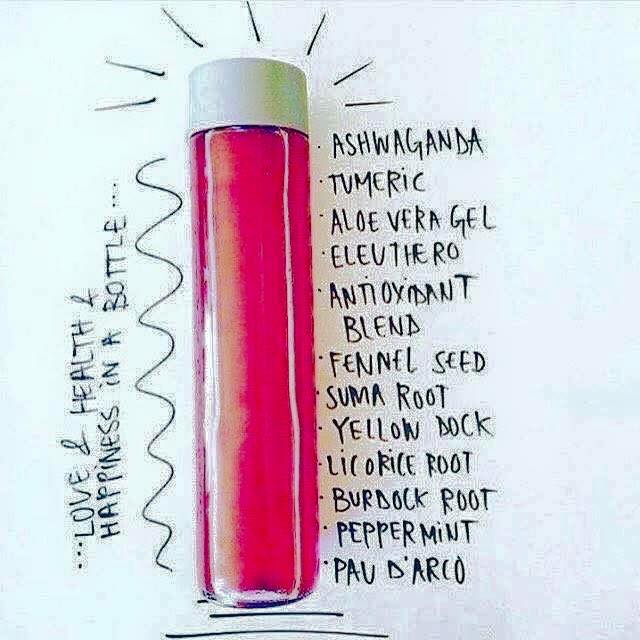 ...LOVE & HEALTH &
HAPPINESS IN A BOTTLE....
· ASHWAGANDA
· TUMERIC
· ALOE VERA GEL
· ELEUTHERO
· ANTIOXIDANT
BLEND
· FENNEL SEED
· SUMA ROOT
· YELLOW DOCK
· LICORICE ROOT
· BURDOCK ROOT
· PEPPERMINT
· PAU D'ARCO